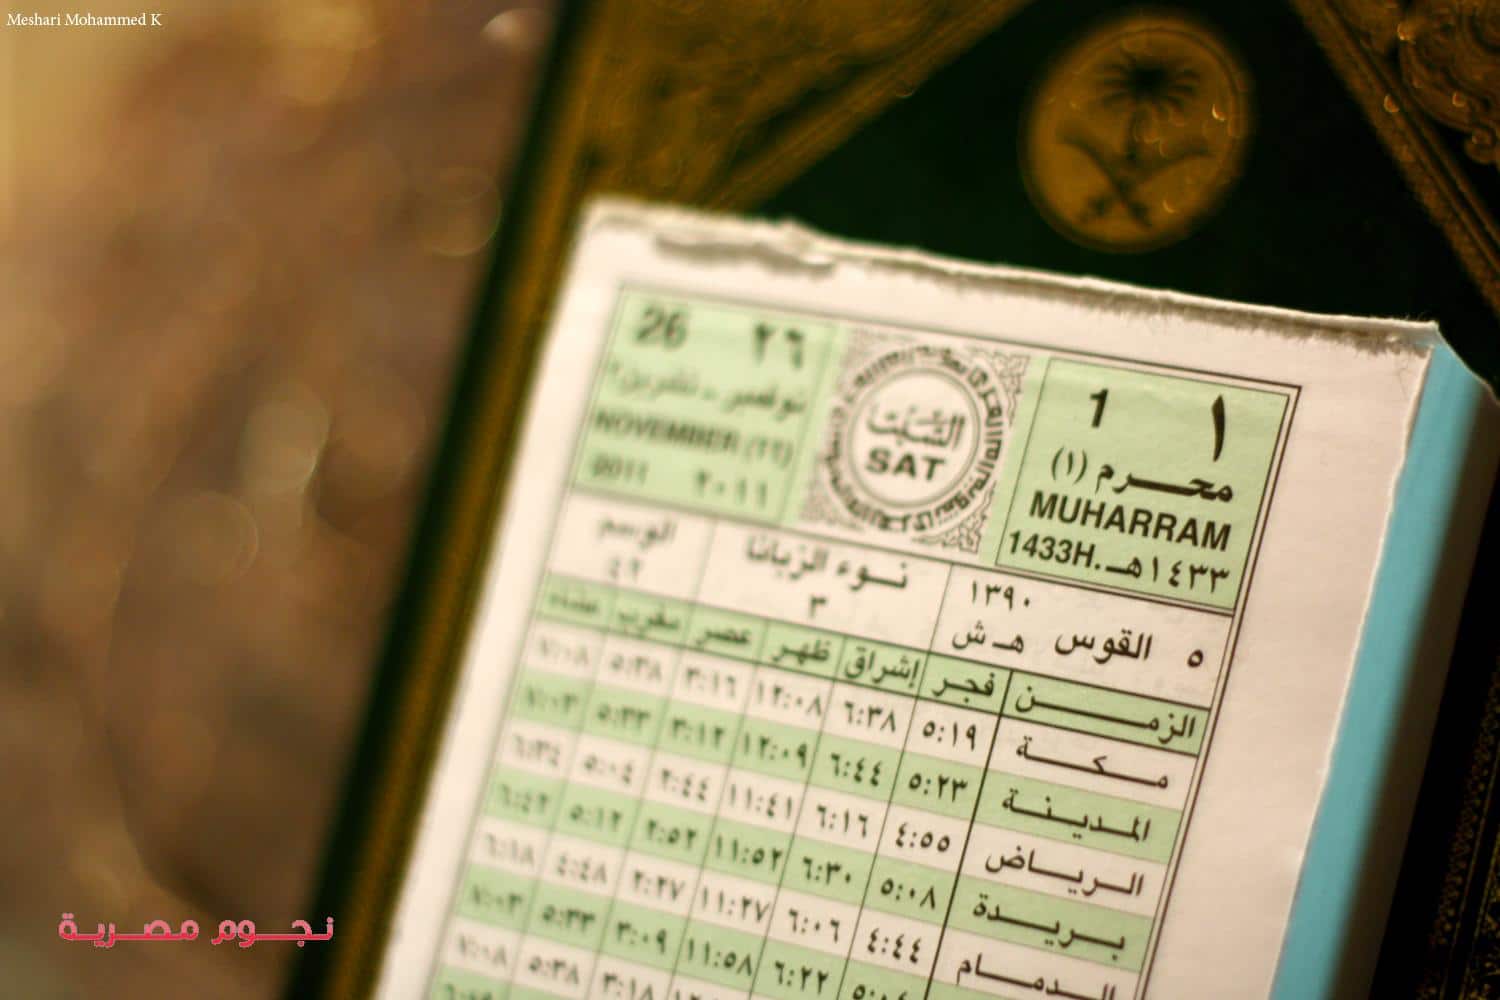 Meshari Mohammed K
١ 1
محرم (١)
MUHARRAM
1433H. ١٤٣٣هـ
السبت
SAT
٢٦ 26
نوفمبر - تشرين٢
NOVEMBER (١١)
٢٠١١ 2011
٥ القوس ١٣٩٠ هـ ش
نوء الزبانا
٣
الوسم
٤٢
الزمن فجر إشراق ظهر عصر مغرب عشاء
مكة ٥:١٩ ٦:٣٨ ١٢:٠٨ ٣:١٦ ٥:٣٨ ٧:٠٨
المدينة ٥:٢٣ ٦:٤٤ ١٢:٠٩ ٣:١٢ ٥:٣٣ ٧:٠٣
الرياض ٤:٥٥ ٦:١٦ ١١:٤١ ٢:٤٤ ٥:٠٤ ٦:٣٤
بريدة ٥:٠٨ ٦:٣٠ ١١:٥٢ ٢:٥٢ ٥:١٢ ٦:٤٢
الدمام ٤:٤٤ ٦:٠٦ ١١:٢٧ ٢:٢٧ ٤:٤٨ ٦:١٨
٦:٢٢ ١١:٥٨ ٣:٠٩ ٥:٣٣ ٧:٠٣
٣:١٨ ٥:٣٨ ٧:٠٨
نجوم مصرية